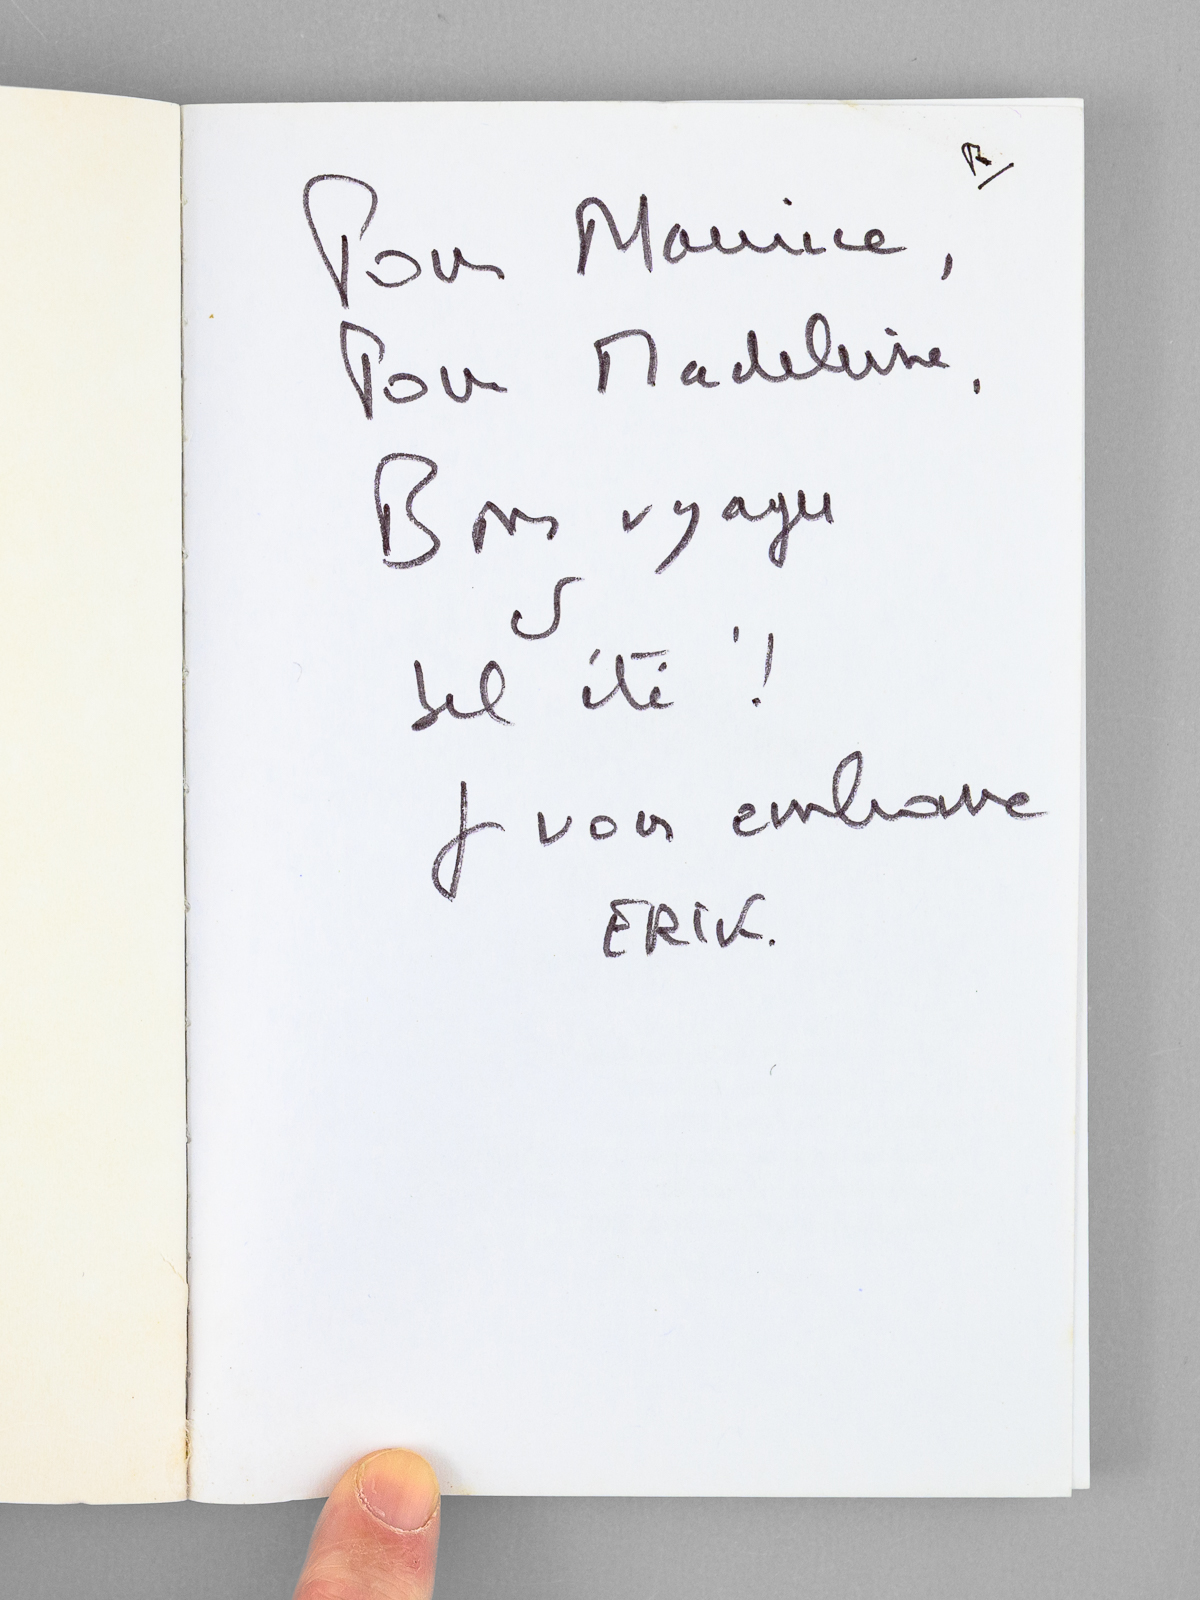 Pour Maurice,
Pour Madeleine.
Bons voyages
&
bel été !
Je vous embrasse
ERIK.